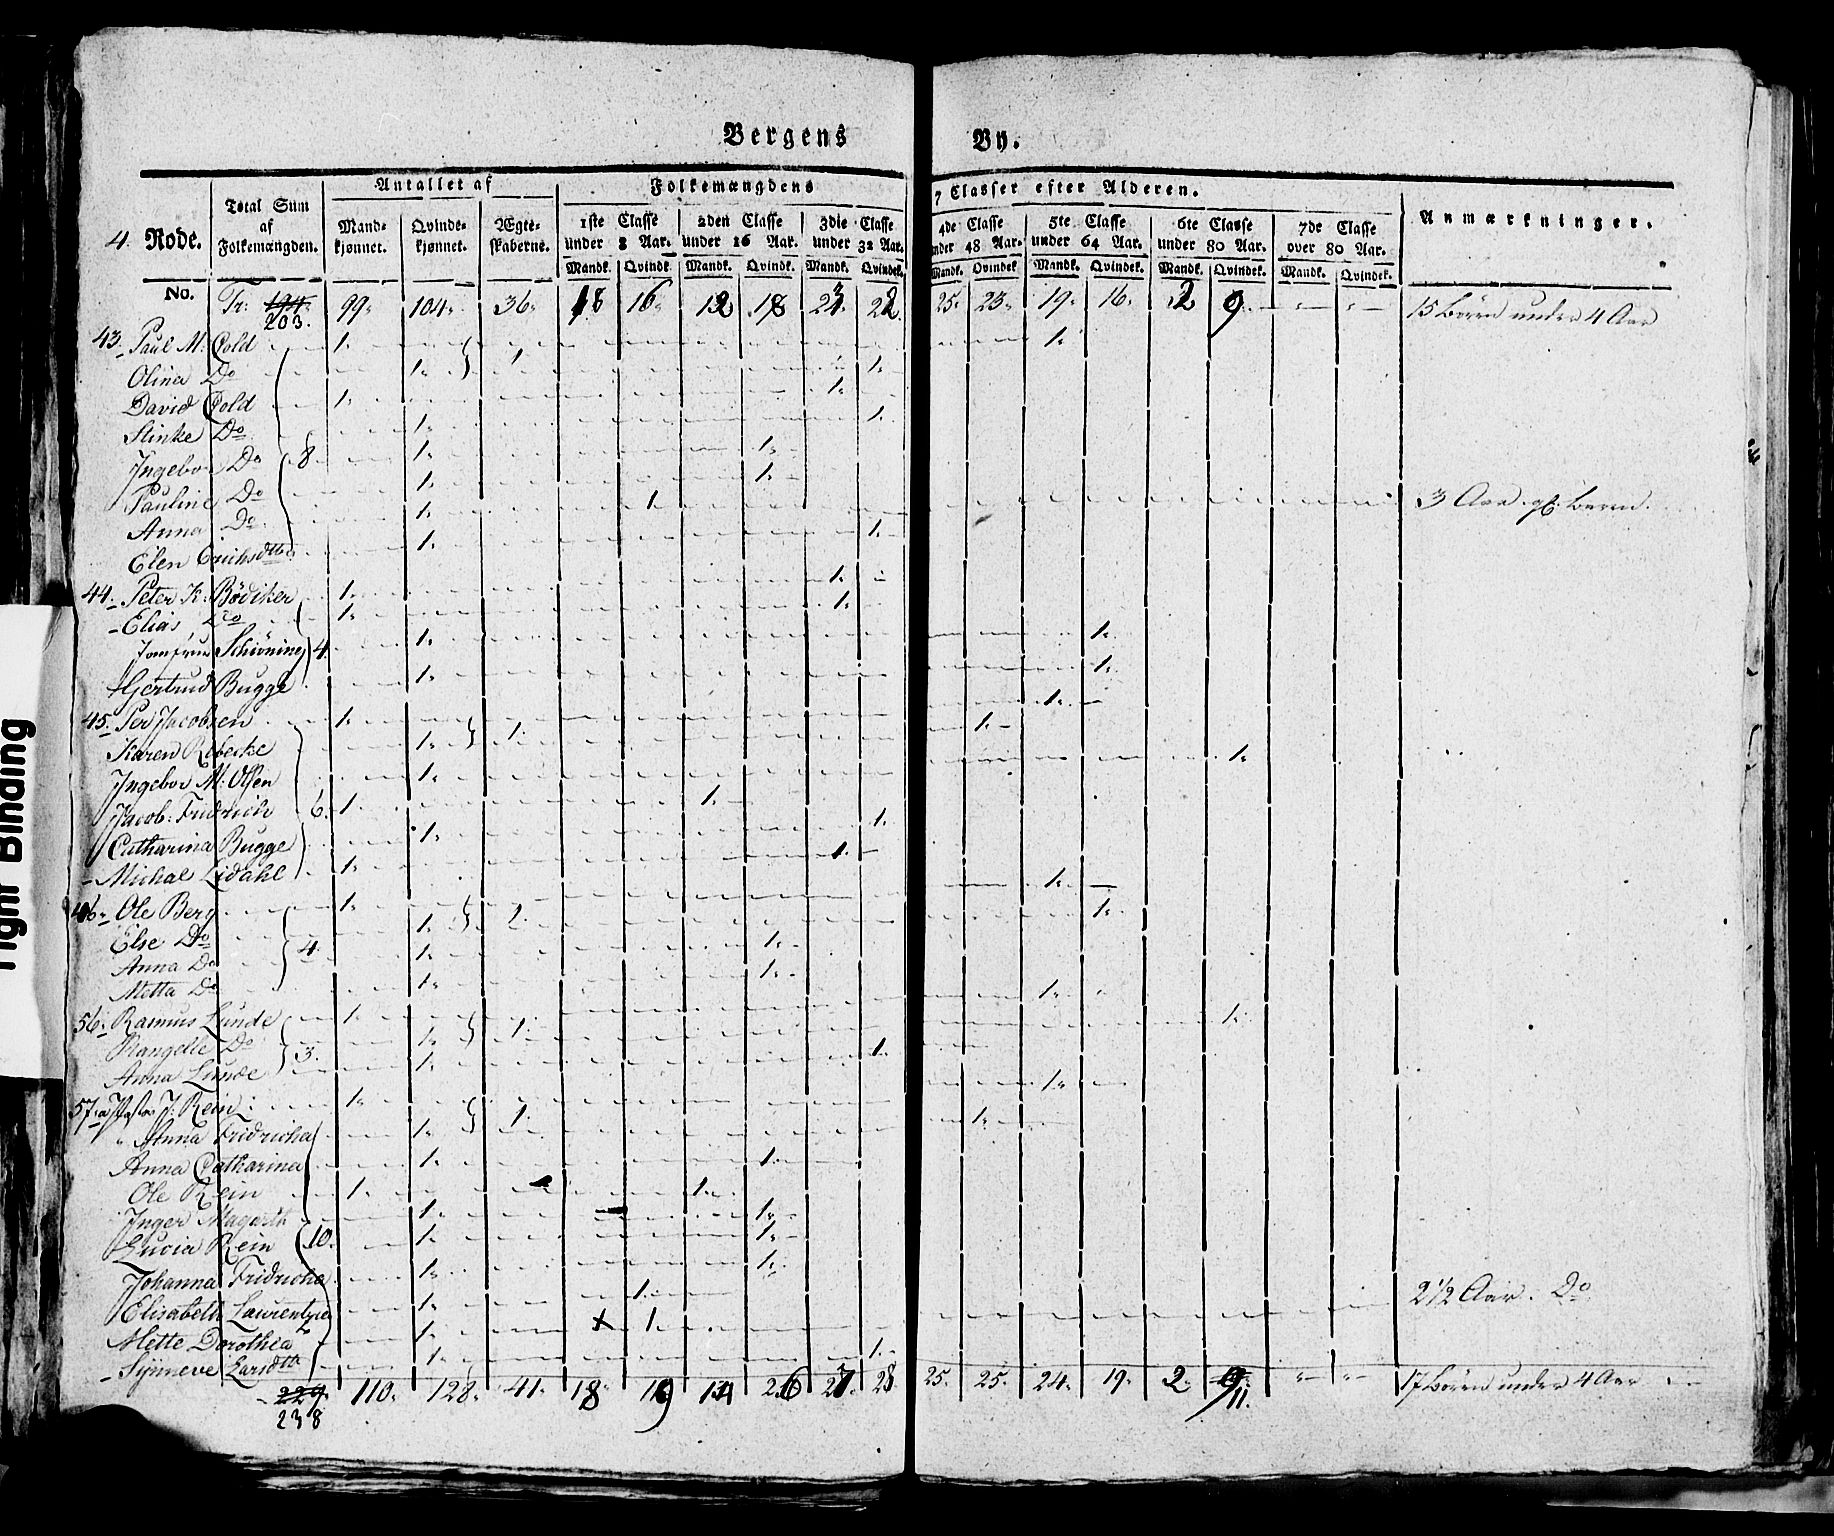 Bergens By.
4. Rode. Total Sum af Folkemængden. Antallet af Mandkjønnet. Qvindekjønnet. Ægteskaberne. Folkemængdens 7 Classer efter Alderen. Anmærkninger.
1ste Classe under 8 Aar. 2den Classe under 16 Aar. 3die Classe under 32 Aar. 4de Classe under 48 Aar. 5te Classe under 64 Aar. 6te Classe under 80 Aar. 7de Classe over 80 Aar.
Mandk. Qvindk. Mandk. Qvindk. Mandk. Qvindek. Mandk. Qvindek. Mandk. Qvindek. Mandk. Qvindek. Mandk. Qvindek.
No. Tr: 194 203. 99. 104. 36. 18 16. 12 18 23 22. 25. 23. 19. 16. 2 9. 15 Børn under 4 Aar
43. Paul M: Cold 1. 1.
Olina Do 1. 1. 1.
David Cold 1. 1.
Stinke Do 1. 1.
Ingebor Do 8. 1. 1.
Pauline Do 1. 1.
Anna Do 1. 1. 3 Aar
Elen Erichsdtte 1. 1.
44. Peter K: Bödiker 1. 1.
Elias Do 1. 1.
Jomfrue Schiöning 4. 1. 1.
Gertrud Bugge 1. 1.
45. Per Jacobsen 1. 1.
Karen Rebecke 1. 1. 1.
Ingebor M: Olsen 1. 1.
Jacob: Fridrich 6. 1. 1.
Catharina Bugge 1. 1.
Michal Lidahl 1. 1.
46. Ole Berg 1. 1.
Else Do 1. 1. 1.
Anna Do 4. 1. 1.
Metta Do 1. 1.
56. Rasmus Lunde 1. 1.
Rangelle Do 1. 1. 1.
Anna Lunde 3. 1. 1.
57. J: Rein 1. 1.
Anna Fridricha 1. 1. 1.
Anna Catharina 1. 1.
Ole Rein 1. 1.
Inger Magarth 1. 1.
Lucia Rein 10. 1. 1.
Johanna Fridricha 1. 1.
Elisabeth Laurentzie 1. 1.
Mette Dorothea 1. 1. 2 1/2 Aar. Do
Synneve Larsdtte 1. 1.
229. 238 110. 128. 41. 18. 19 14 26 27. 28. 25. 25. 24. 19. 2. 9 11. 17 Børn under 4 Aar
Tight Binding